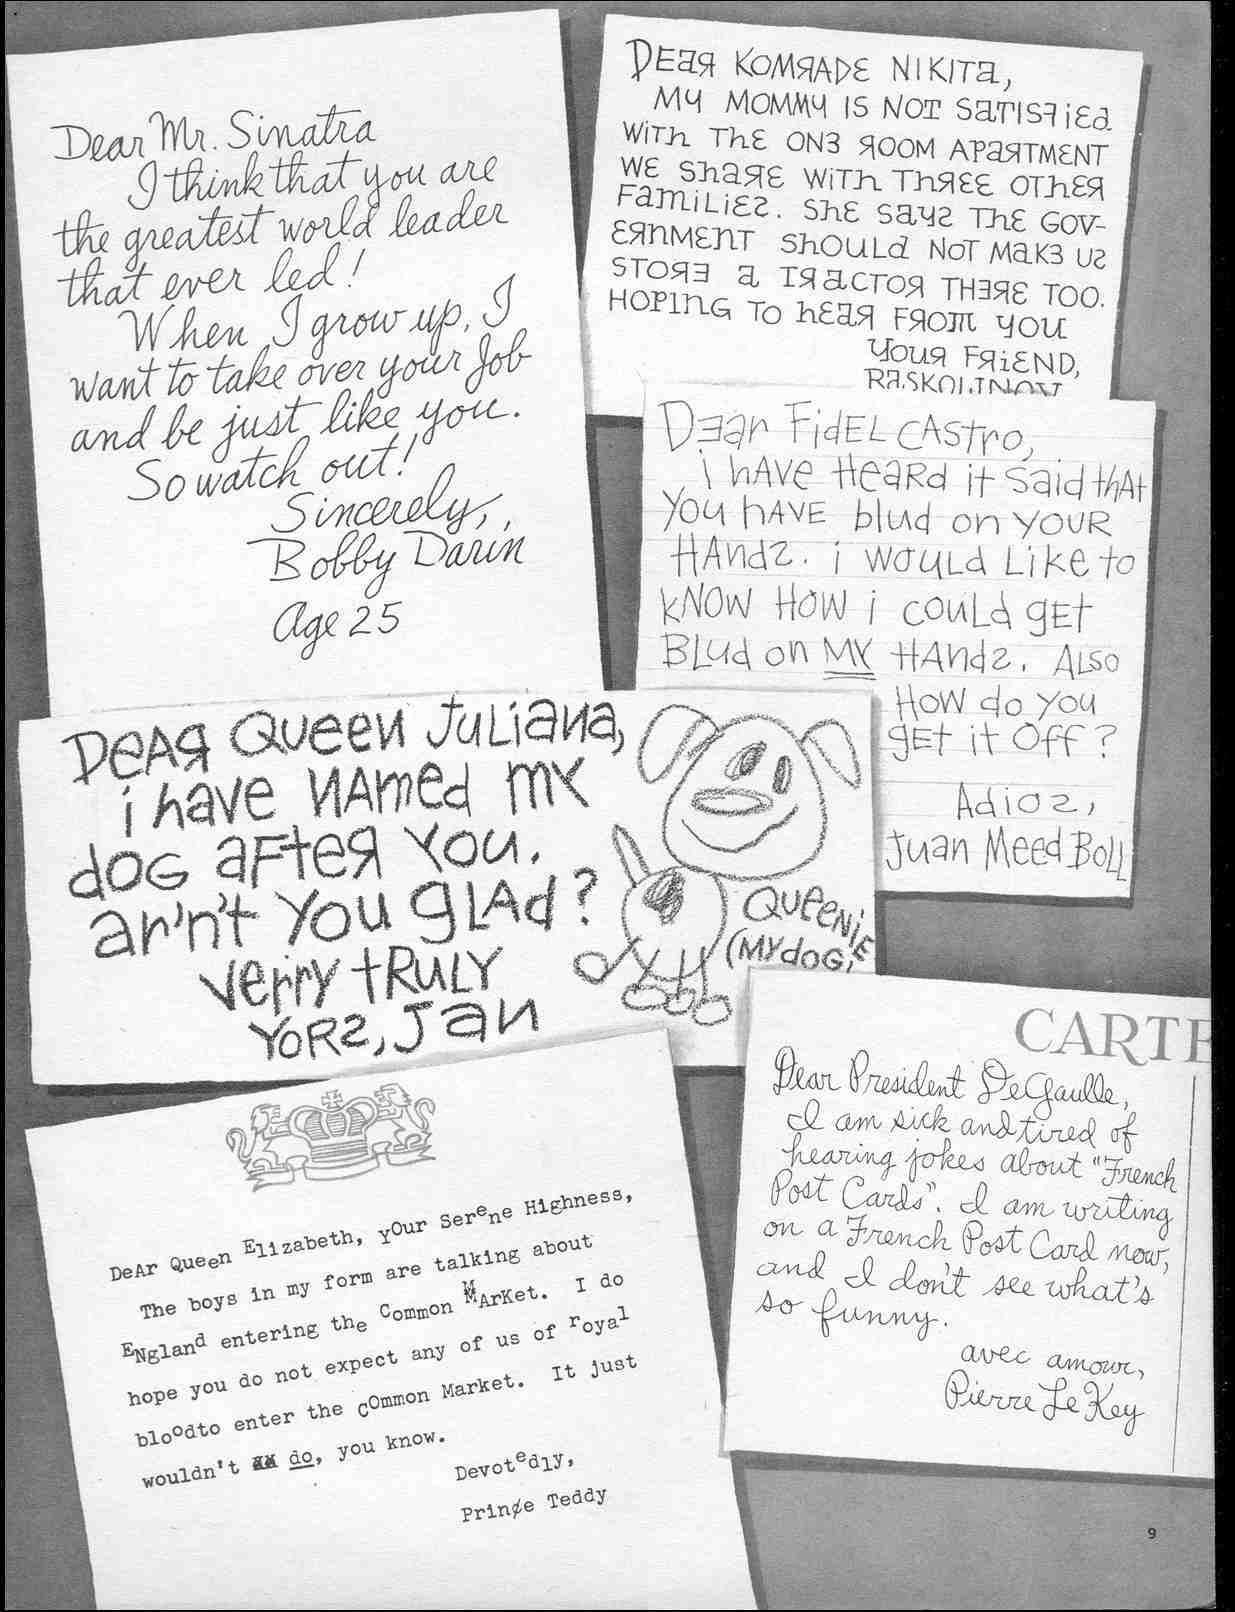 Dear Mr. Sinatra
I think that you are
the greatest world leader
that ever led!
When I grow up, I
want to take over your job
and be just like you.
So watch out!
Sincerely,
Bobby Darin
Age 25
DEAR KOMRADE NIKITA,
MY MOMMY IS NOT SATISFIED
WITH THE ONE ROOM APARTMENT
WE SHARE WITH THREE OTHER
FAMILIES. SHE SAYS THE GOV-
ERNMENT SHOULD NOT MAKE US
STORE A TRACTOR THERE TOO.
HOPING TO HEAR FROM YOU
YOUR FRIEND,
RASKOLINOV
DEar FidEL CAStro,
i hAVE HeaRd it Said thAt
You hAVE blud on YOUR
HANds. i WOULd LiKe to
KNOW HOW i COULd gEt
BLud on MY HANds. ALSO
HOW do YOU
gEt it OFF?
Adios,
Juan Meed BOLL
DeAR QUeeN JULiaNa,
i have NAmed mY
dOG aFteR YOU.
ar'n't YOU gLAd?
verry tRULY
YORs, JaN
QUeeNiE
(MY dOG)
DeAr Queen Elizabeth, yOur Serene Highness,
The boys in my form are talking about
ENgland entering the Common MArKet. I do
hope you do not expect any of us of royal
bloodto enter the cOmmon Market. It just
wouldn't do, you know.
Devotedly,
Prince Teddy
CARTE
Dear President DeGaulle,
I am sick and tired of
hearing jokes about "French
Post Cards". I am writing
on a French Post Card now,
and I don't see what's
so funny.
avec amour,
Pierre Le Key
9